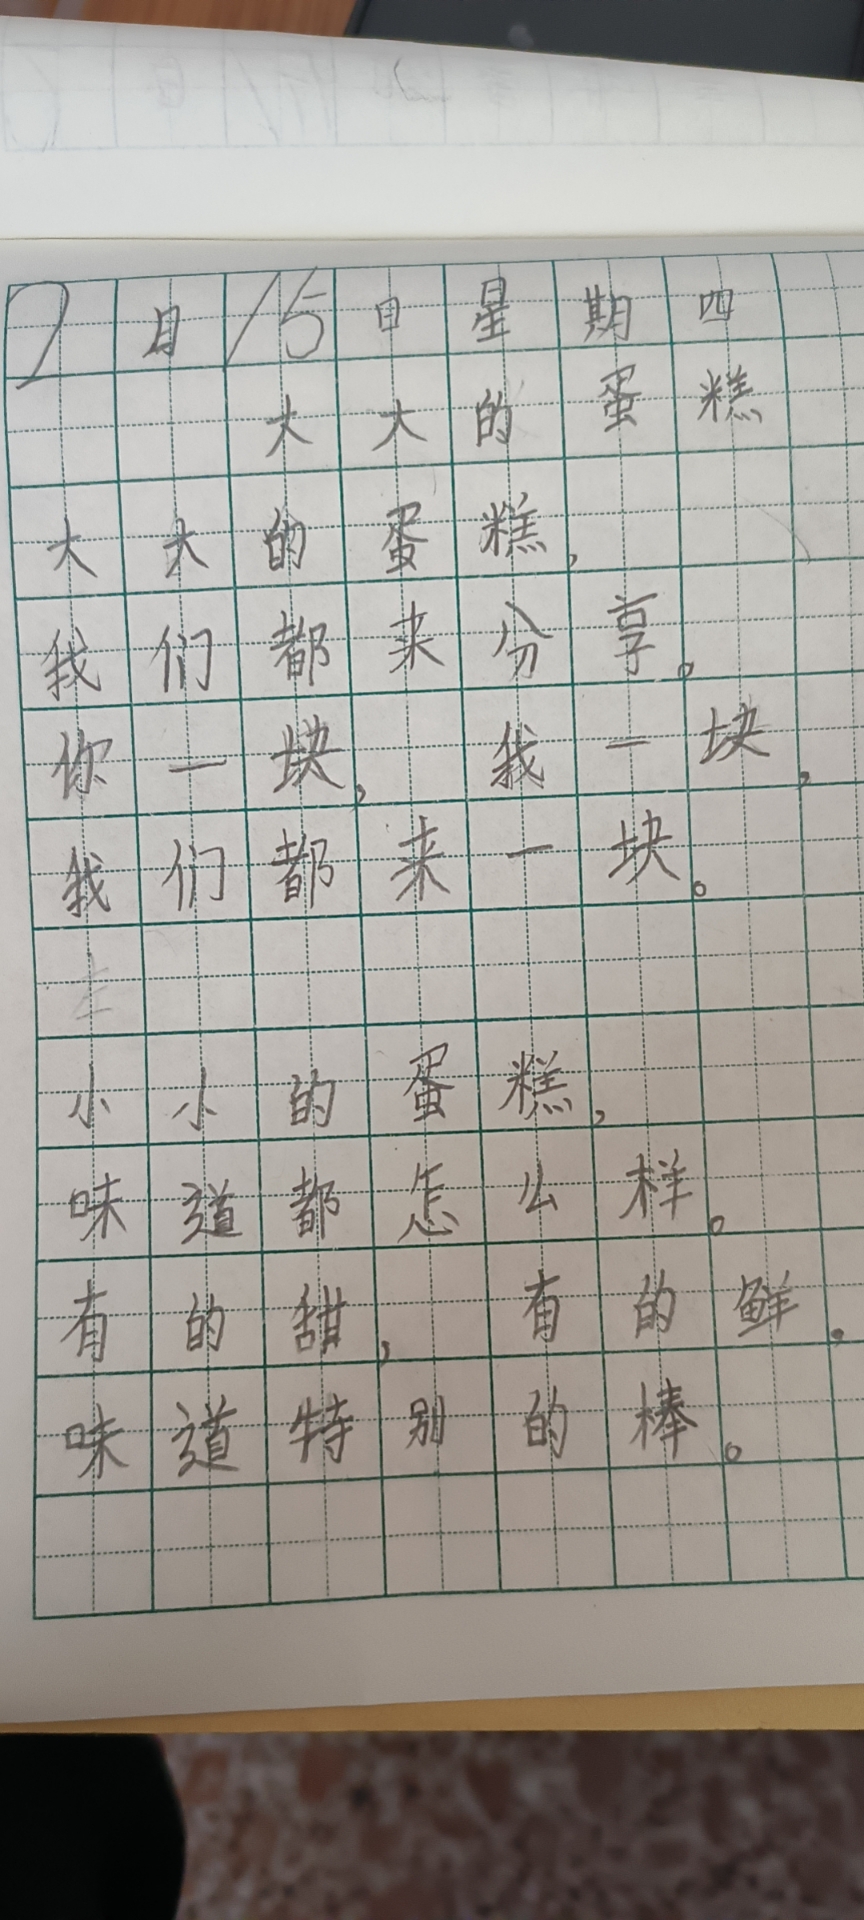 2月15日星期四
大大的蛋糕
大大的蛋糕,
我们都来分享。
你一块, 我一块,
我们都来一块。
小小的蛋糕,
味道都怎么样。
有的甜, 有的鲜。
味道特别的棒。